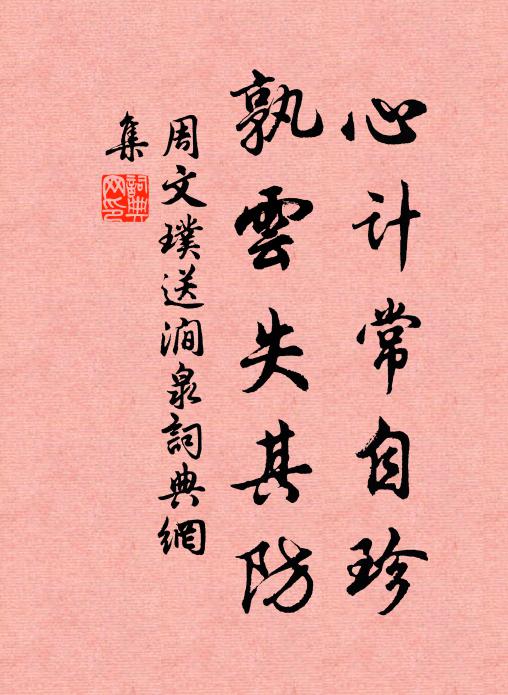 心计常自珍
孰雲失其防
周文璞送涧泉詞典網
集
詞典
网印